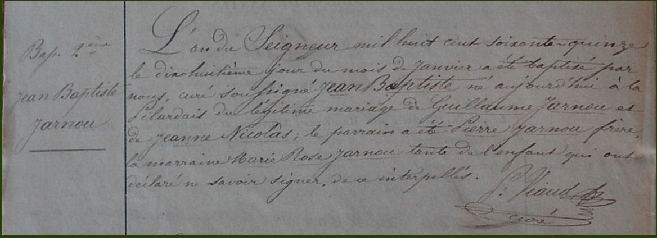 Bap. 2ème
Jean Baptiste
Jarnou
L'an du Seigneur mil huit cent soixante-quinze
le dix huitième jour du mois de janvier a été baptisé par
nous, curé soussigné Jean Baptiste né aujourd'hui à la
Pilardais du légitime mariage de Guillaume Jarnou et
de Jeanne Nicolas; le parrain a été Pierre Jarnou frère,
la marraine Marie Rose Jarnou tante de l'enfant qui ont
déclaré ne savoir signer, de ce interpellés.
J. Viaud
curé